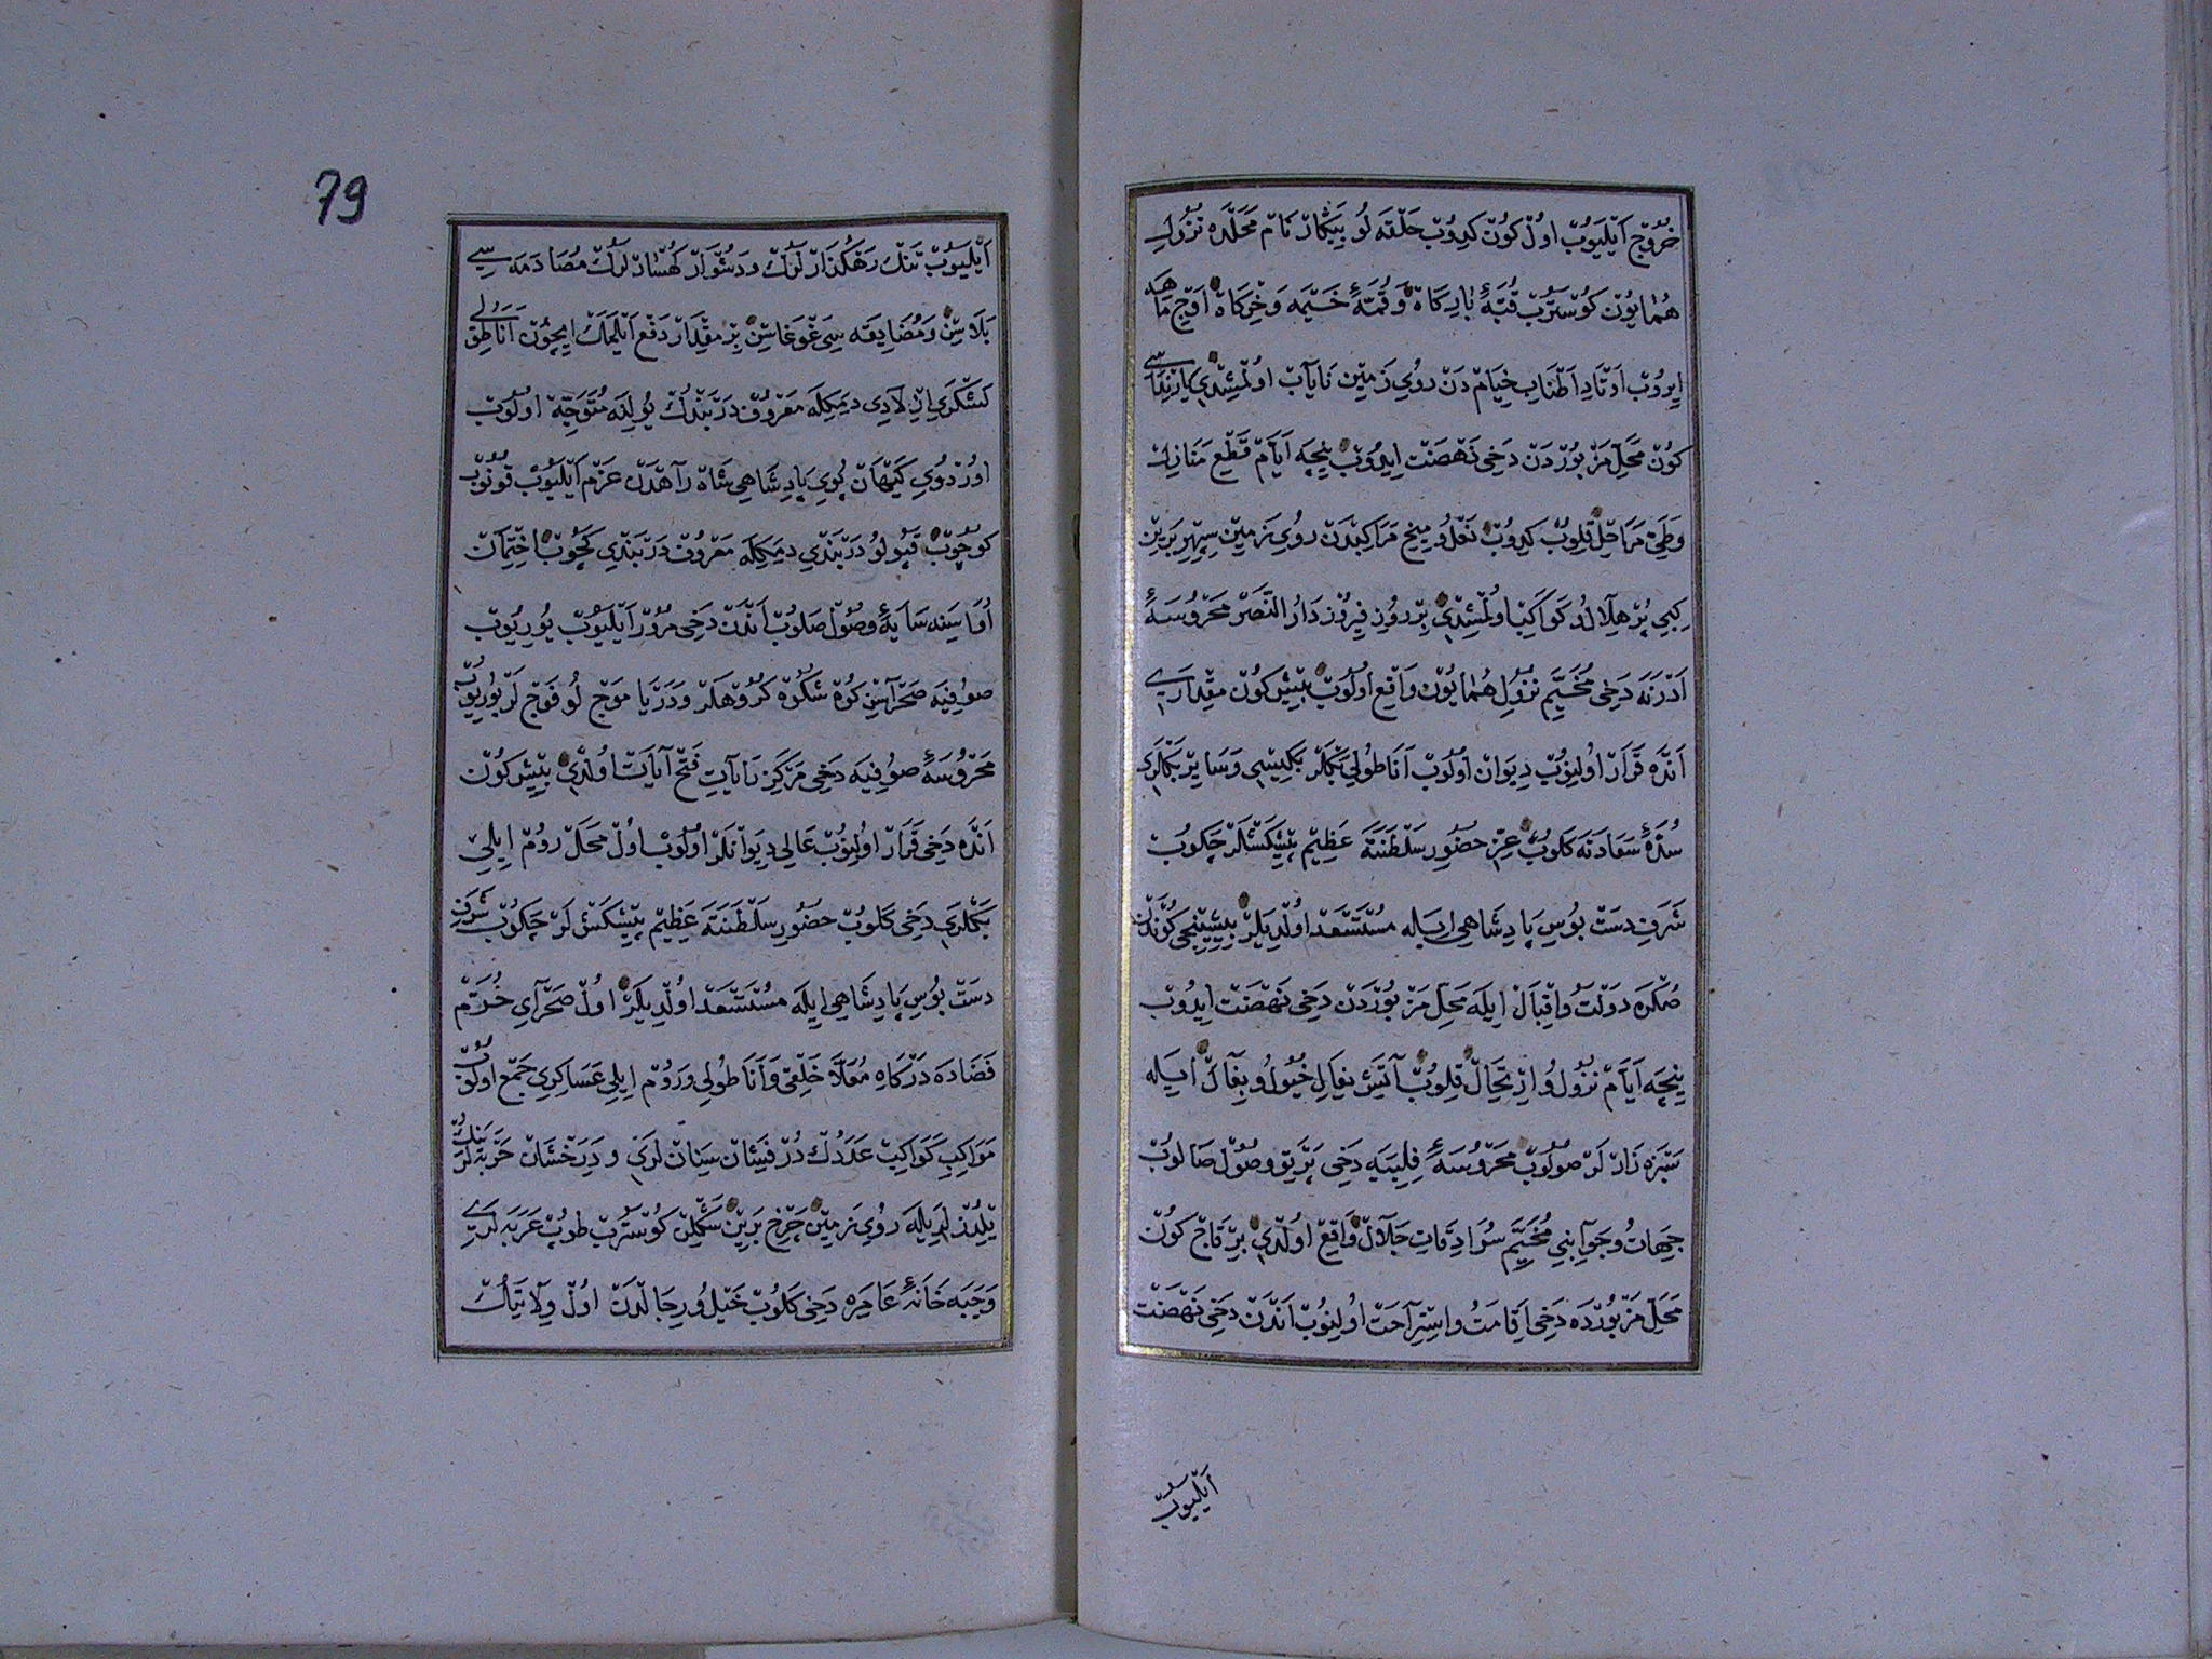 خُرُوجْ اَيْلَيُوبْ اولْ كُونْ كيدُوبْ حَلْقَه لُو بيكَارْ نَامْ مَحَلْدَه نُزُولِ
هُمَايُونْ كُوسْتَرُبْ قُبَّهٔ بَارِكَاهْ وَ قُمَّهٔ خَيْمَه وَ خِرْكَاهْ اَوْجِ مَاهَه
ايرُوبْ اَوْتَادِ اَطْنَابِ خِيَامْ دَنْ رُويِ زَمِينْ نَايَابْ اولْمِشْدِي يَارِنْدَاسِي
كُونْ مَحَلِّ مَزْبُورْدَنْ دَخِي نَهْضَتْ ايدُوبْ نِيچَه اَيَّامْ قَطْعِ مَنَازِلْ
وَطَيِّ مَرَاحِلْ قِلُوبْ كيدُوبْ نَعْلُ وميخِ مَرَاكِبْدَنْ رُويِ زَمِينْ سِپِهْرِ بَرِينْ
كِبِي پُرْ هِلَالُ وكَوَاكِبْ اولْمِشْدِي بِرْ رُوزِ فِيرُوزْ دَارُ النَّصْرْ مَحْرُوسَهٔ
اَدْرَنَه دَخِي مُخَيَّمِ نُزُولِ هُمَايُونْ وَاقِعْ اولُوبْ بِشْ كُونْ مِقْدَارِي
اَنْدَه قَرَارْ اولِنُوبْ ديوَانْ اولُوبْ اَنَاطُولِي بَكْلَرْ بَكِيسِي وَسَايِرْ بَكْلَرِي
سُدَّهٔ سَعَادَتَه كَلُوبْ عِزِّ حُضُورِ سَلْطَنَتَه عَظِيمْ پيشْكَشْلَرْ چَكُوبْ
شَرَفِ دَسْتْ بُوسِ پَادِشَاهِي ايلَه مُسْتَسْعَدْ اولْدِيلَرْ بِشِنْجِي كُونْدَنْ
صُكْرَه دَوْلَتْ واقْبَالْ ايلَه مَحَلِّ مَزْبُورْدَنْ دَخِي نَهْضَتْ ايدُوبْ
نِيچَه اَيَّامْ نُزُولُ وارْتِحَالْ قِلُوبْ آتَشِ نِعَالِ خُيُولُ وبِغَالْ ايلَه
سَبْزَه زَارْ لَرْ صُولُوبْ مَحْرُوسَهٔ فِلِبَيَه دَخِي پَرْتَوِ وصُولْ صَالُوبْ
جِهَاتُ وجَوَانِبِي مُخَيَّمِ سُرَادِقَاتِ جَلَالْ وَاقِعْ اولْدِي بِرْ قَاجْ كُونْ
مَحَلِّ مَزْبُورْدَه دَخِي اِقَامَتُ واسْتِرَاحَتْ اولِنُوبْ اَنْدَنْ دَخِي نَهْضَتْ
اَيْلَيُوبْ
79
اَيْلَيُوبْ تَنْكْ رَهْكُذَارْ لَرُكْ ودَشْوَارْ كُهْسَارْ لَرُكْ مُصَادَمَه سِي
بَلَاسِنْ ومُضَايَقَه سِي غَوْغَاسِنْ بِرْ مِقْدَارْ دَفْعْ اَيْلَمَكْ ايچُونْ اَنَاطُولِي
لَشْكَرِي ... ديمَكِلَه مَعْرُوفْ دَرْبَنْدُكْ يُولِنَه مُتَوَجِّهْ اولُوبْ
اورْدُويِ كَيْهَانْ پُويِ پَادِشَاهِي شَاهْ رَاهْدَنْ عَزْمْ اَيْلَيُوبْ قُونُوبْ
كوچُوبْ قَپُولُو دَرْبَنْدِي ديمَكِلَه مَعْرُوفْ دَرْبَنْدِي كَچُوبْ اخْتِمَانْ
اُوَاسِنَه سَايَهٔ وصُولْ صَلُوبْ اَنْدَنْ دَخِي مُرُورْ اَيْلَيُوبْ يُورِيُوبْ
صُوفِيَه صَحْرَاسِنْ كُوهْ شُكُوهْ كُرُوهْلَرْ وَدَرْيَا مَوْجْ لُو فَوْجْ لَرْ بُورِيُوبْ
مَحْرُوسَهٔ صُوفِيَه دَخِي مَرْكَزِ رَايَاتِ فَتْحْ آيَاتْ اولْدِي بِشْ كُونْ
اَنْدَه دَخِي قَرَارْ اولِنُوبْ عَالِي ديوَانْلَرْ اولُوبْ اولْ مَحَلْ رُومْ ايلِي
بَكْلَرِي دَخِي كَلُوبْ حُضُورِ سَلْطَنَتَه عَظِيمْ پيشْكَشْ لَرْ چَكُوبْ شَرَفِ
دَسْتْ بُوسِ پَادِشَاهِي ايلَه مُسْتَسْعَدْ اولْدِيلَرْ اولْ صَحْرَايِ خُرَّمْ
فَضَادَه دَرْكَاهِ مُعَلَّا خَلْقِي وَاَنَاطُولِي ورُومْ ايلِي عَسَاكِرِي جَمْعْ اولُوبْ
مَوَاكِبِ كَوَاكِبْ عَدَدُكْ دُرْفَشَانْ سِنَانْ لَرِي و دَرَخْشَانْ حَرْبَه لَرِينُكْ
يِلْدُزْلَرِيلَه رُويِ زَمِينْ چَرْخِ بَرِينْ شَكْلِنْ كُوسْتَرُبْ طُوبْ عَرَبَه لَرِي
وَجَبَه خَانَهٔ عَامِرَه دَخِي كَلُوبْ خَيْلُ ورِجَالْدَنْ اولْ وِلَايَتُكْ